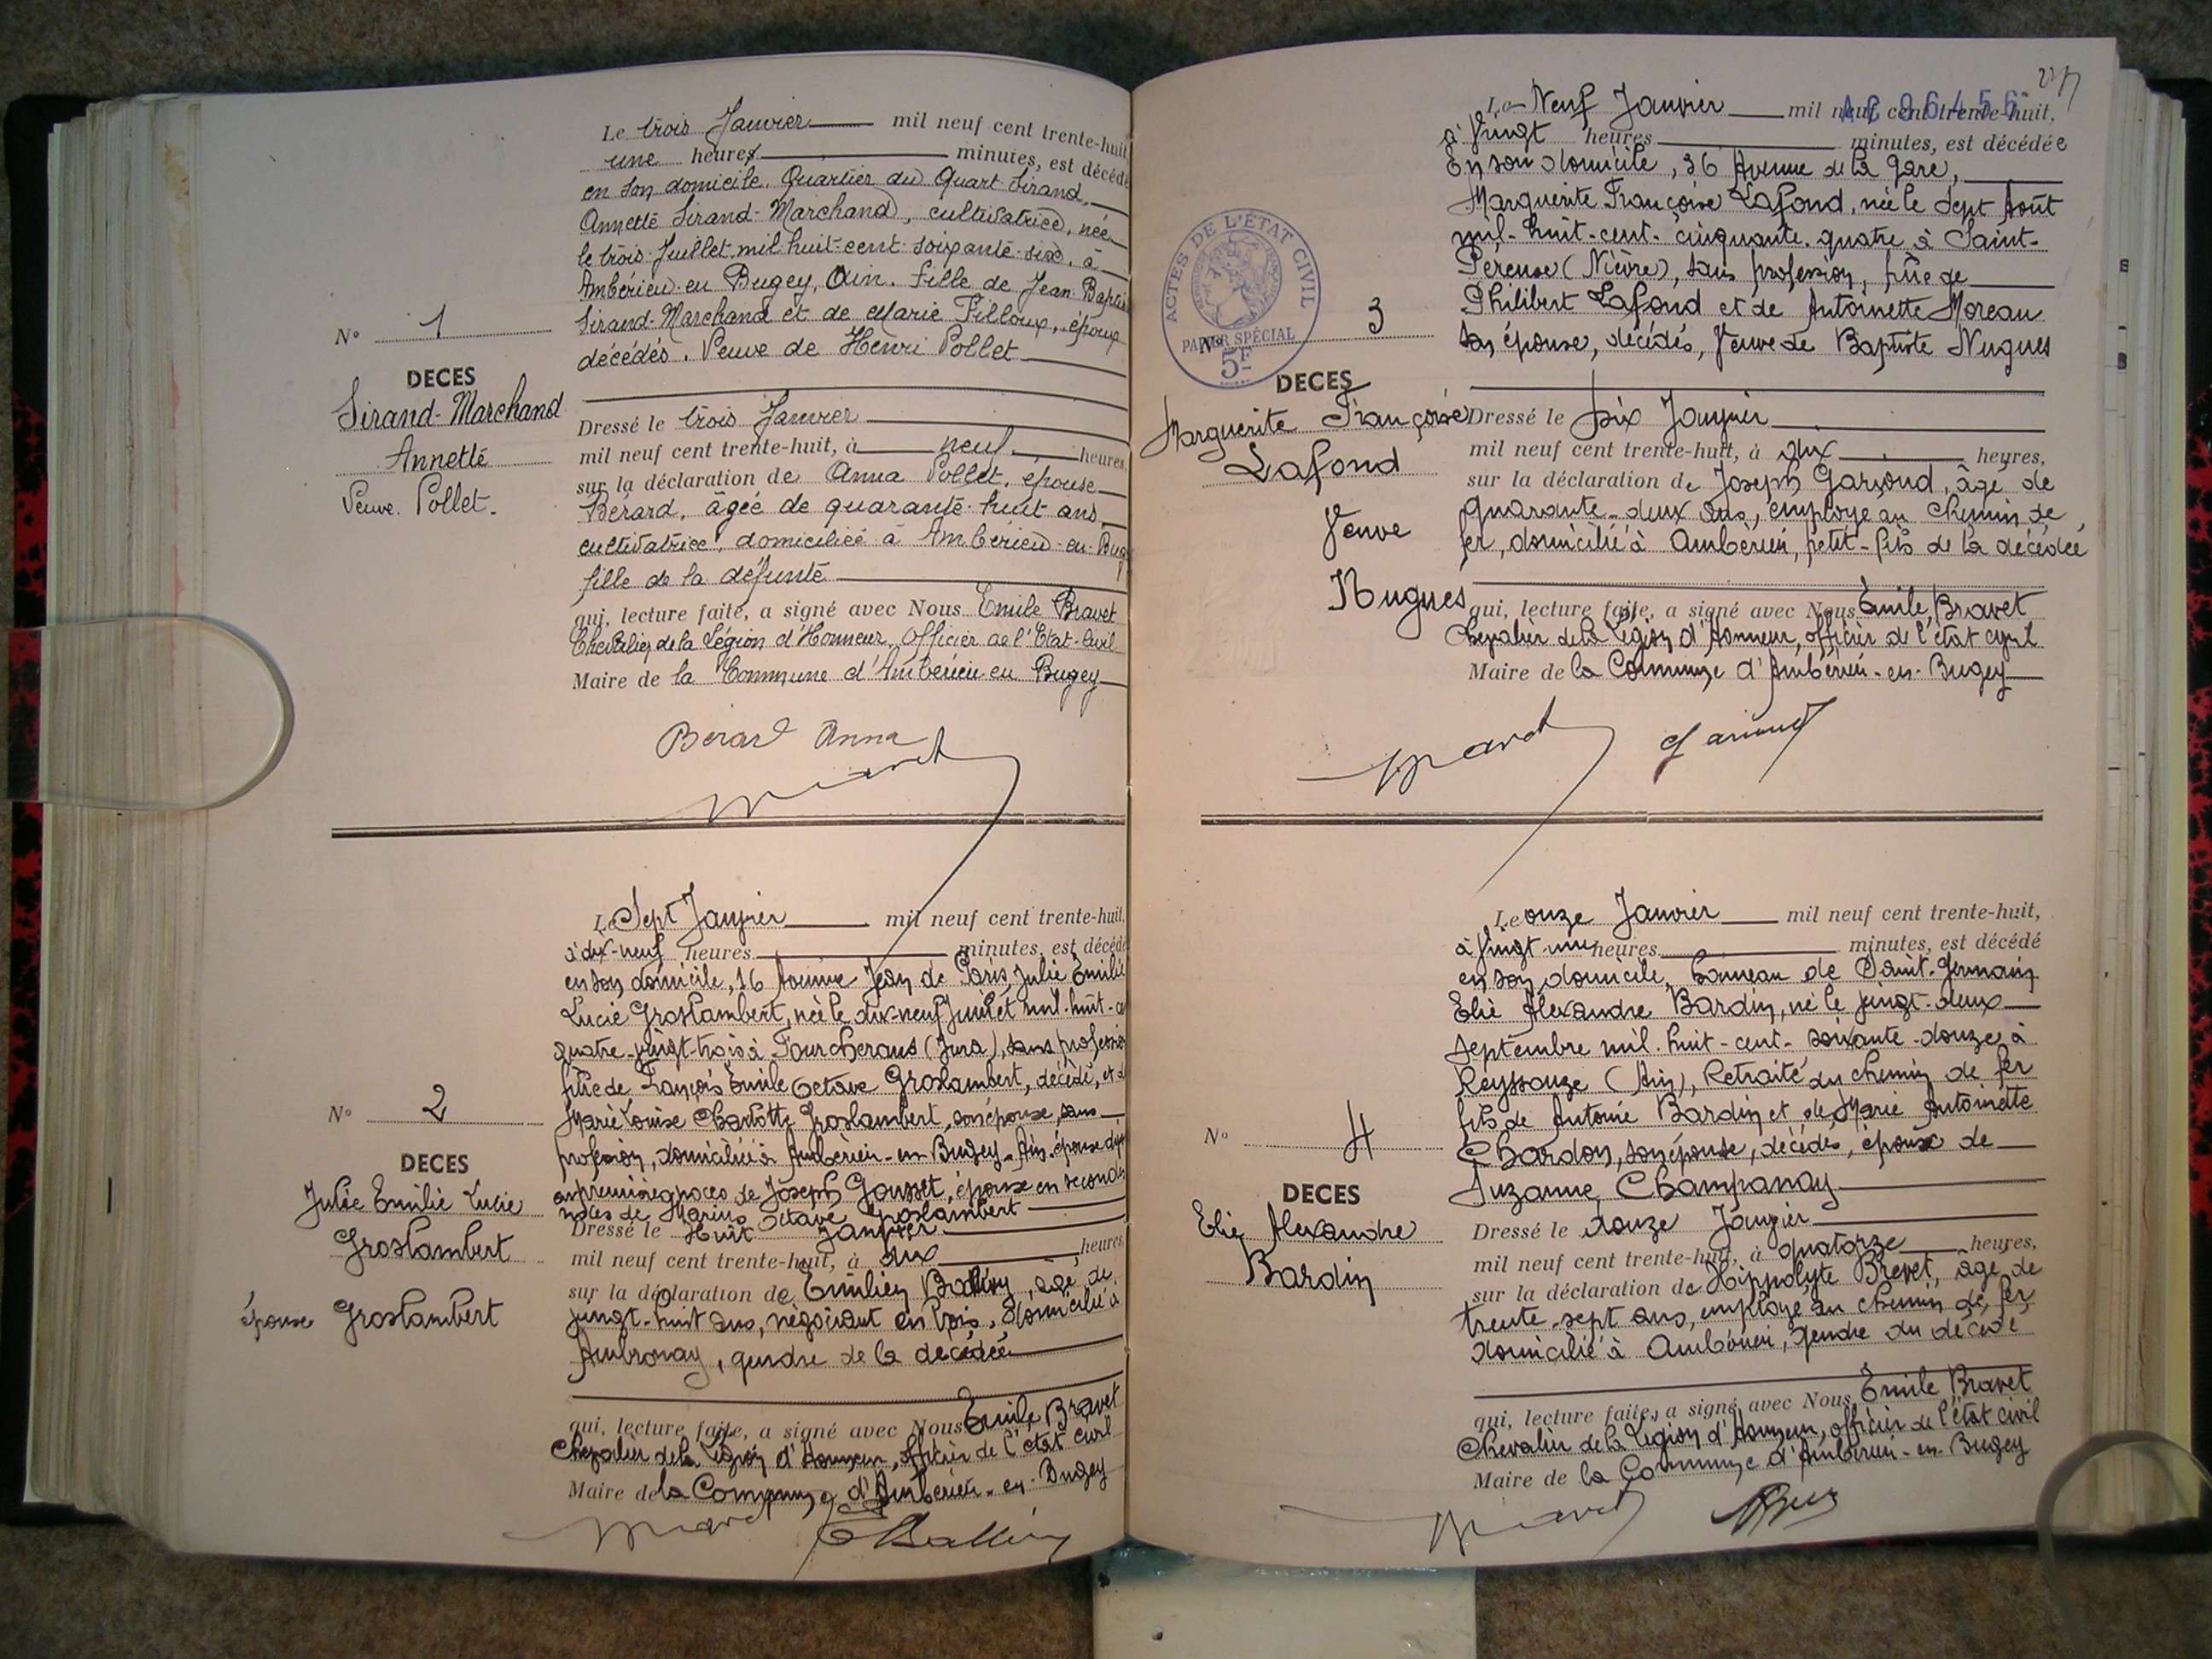 Le trois Janvier mil neuf cent trente-huit
une heures minutes, est décédé
en son domicile. Quartier du Quart Sirand,
Annette Sirand-Marchand, cultivatrice, née
le trois Juillet mil huit-cent-soixante-six, à
Ambérieu-en Bugey, Ain. fille de Jean Baptis
Sirand-Marchand et de Marie Filloux, époux
décédés. Veuve de Henri Pollet
N° 1
DECES
Sirand-Marchand
Annette
Veuve Pollet.
Dressé le trois Janvier
mil neuf cent trente-huit, à neuf heures
sur la déclaration de Anna Pollet, épouse
Bérard, âgée de quarante-huit ans,
cultivatrice, domiciliée à Ambérieu-en-Bug
fille de la défunte
qui, lecture faite, a signé avec Nous Emile Bravet
Chevalier de la Légion d'Honneur, Officier de l'Etat-Civil
Maire de la Commune d'Ambérieu en Bugey
Berard Anna
Le Sept Janvier mil neuf cent trente-huit,
à dix-neuf heures minutes, est décédé
en son domicile, 16 Avenue Jean de Paris, Julie Emilie
Lucie Groslambert, née le dix-neuf Juillet mil-huit-ce
quatre-vingt-trois à Fourcherans (Jura), sans profession
fille de François Emile Octave Groslambert, décédé, et d
Marie Louise Charlotte Groslambert, son épouse, sans
profession, domiciliée à Ambérieu-en-Bugey-Ain. épouse
en premières noces de Joseph Gousset, épouse en secondes
noces de Marius Octave Groslambert
N° 2
DECES
Julie Emilie Lucie
Groslambert
épouse Groslambert
Dressé le Huit Janvier
mil neuf cent trente-huit, à dix heures
sur la déclaration de Emilien Ballivy, âgé de
vingt-huit ans, négociant en bois, domicilié à
Ambronay, gendre de la décédée
qui, lecture faite, a signé avec Nous Emile Bravet
Chevalier de la Légion d'Honneur, officier de l'état civil
Maire de la Commune d'Ambérieu-en-Bugey
Le Neuf Janvier mil neuf cent trente-huit,
à Vingt heures minutes, est décédée
En son domicile, 36 Avenue de la Gare,
Marguerite Françoise Lafond, née le Sept Août
mil-huit-cent-cinquante-quatre à Saint-
Pereuse (Nièvre), sans profession, fille de
Philibert Lafond et de Antoinette Moreau
son épouse, décédés, Veuve de Baptiste Nugues
ACTES DE L'ETAT CIVIL
PAPIER SPÉCIAL
5F
N° 3
DECES
Marguerite Françoise
Lafond
Veuve
Nugues
Dressé le Dix Janvier
mil neuf cent trente-huit, à dix heures,
sur la déclaration de Joseph Garioud, âgé de
quarante-deux ans, employé au chemin de
fer, domicilié à Ambérieu, petit-fils de la décédée
qui, lecture faite, a signé avec Nous Emile Bravet
Chevalier de la Légion d'Honneur, officier de l'état civil
Maire de la Commune d'Ambérieu-en-Bugey
Le onze Janvier mil neuf cent trente-huit,
à Vingt une heures minutes, est décédé
en son domicile, hameau de Saint-Germain
Elie Alexandre Bardin, né le vingt-deux
septembre mil-huit-cent-soixante-douze à
Reyssouze (Ain), Retraité du chemin de fer
fils de Antoine Bardin et de Marie Antoinette
Chardon, son épouse, décédés, époux de
Suzanne Champanay
N° 4
DECES
Elie Alexandre
Bardin
Dressé le douze Janvier
mil neuf cent trente-huit, à quatorze heures,
sur la déclaration de Hippolyte Brevet, âgé de
trente-sept ans, employé au chemin de fer
domicilié à Ambérieu, gendre du décédé
qui, lecture faite, a signé avec Nous Emile Bravet
Chevalier de la Légion d'Honneur, officier de l'état civil
Maire de la Commune d'Ambérieu-en-Bugey